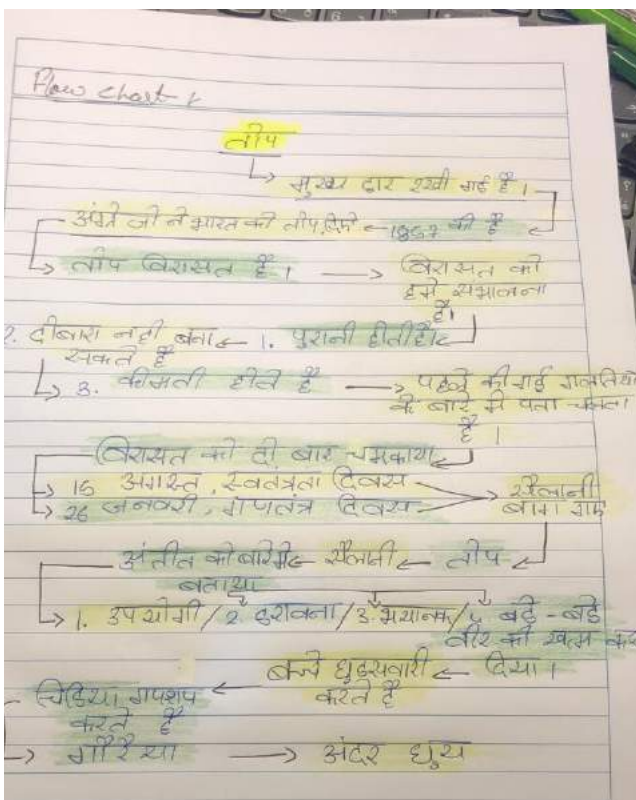 Flow chart
तोप
मुख्य द्वार रखी गई है।
अंग्रेजो ने भारत को तोप दिये 1857 की है
तोप विरासत है। विरासत को
हमे संभालना
है।
2. दोबारा नही बना 1. पुरानी होती है
सकते है
3. कीमती होते है पहले की गई गलतियो
के बारे मे पता चलता
है।
विरासत को दो बार चमकाया
15 अगस्त, स्वतंत्रता दिवस सैलानी
26 जनवरी, गणतंत्र दिवस बाग गए
अतीत को बारे मे सैलानी तोप
बताया
1. उपयोगी / 2. डरावना / 3. भयानक / 4. बड़े - बड़े
वीर को खत्म कर
बच्चे घुड़सवारी दिया।
चिडिया गपशप करते है
करते है
गौरैया अंदर घुस